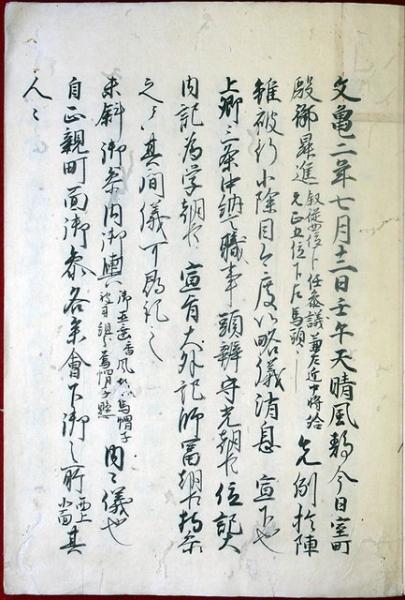 文亀二年七月十二日壬午天晴風静今日室町
殿御昇進叙従四位下任参議兼左近中将給元正五位下左馬頭也先例於陣
雖被行小除目今度以略儀消息宣下也
上卿三条中納言職事頭弁守光朝臣位記大
内記為学朝臣宣旨大外記師富朝臣持参
之其間儀可尋記之
未斜御参内御輿御直衣烏帽子内々儀也
自正親町面御参各参会下御之所西上小面其
人々